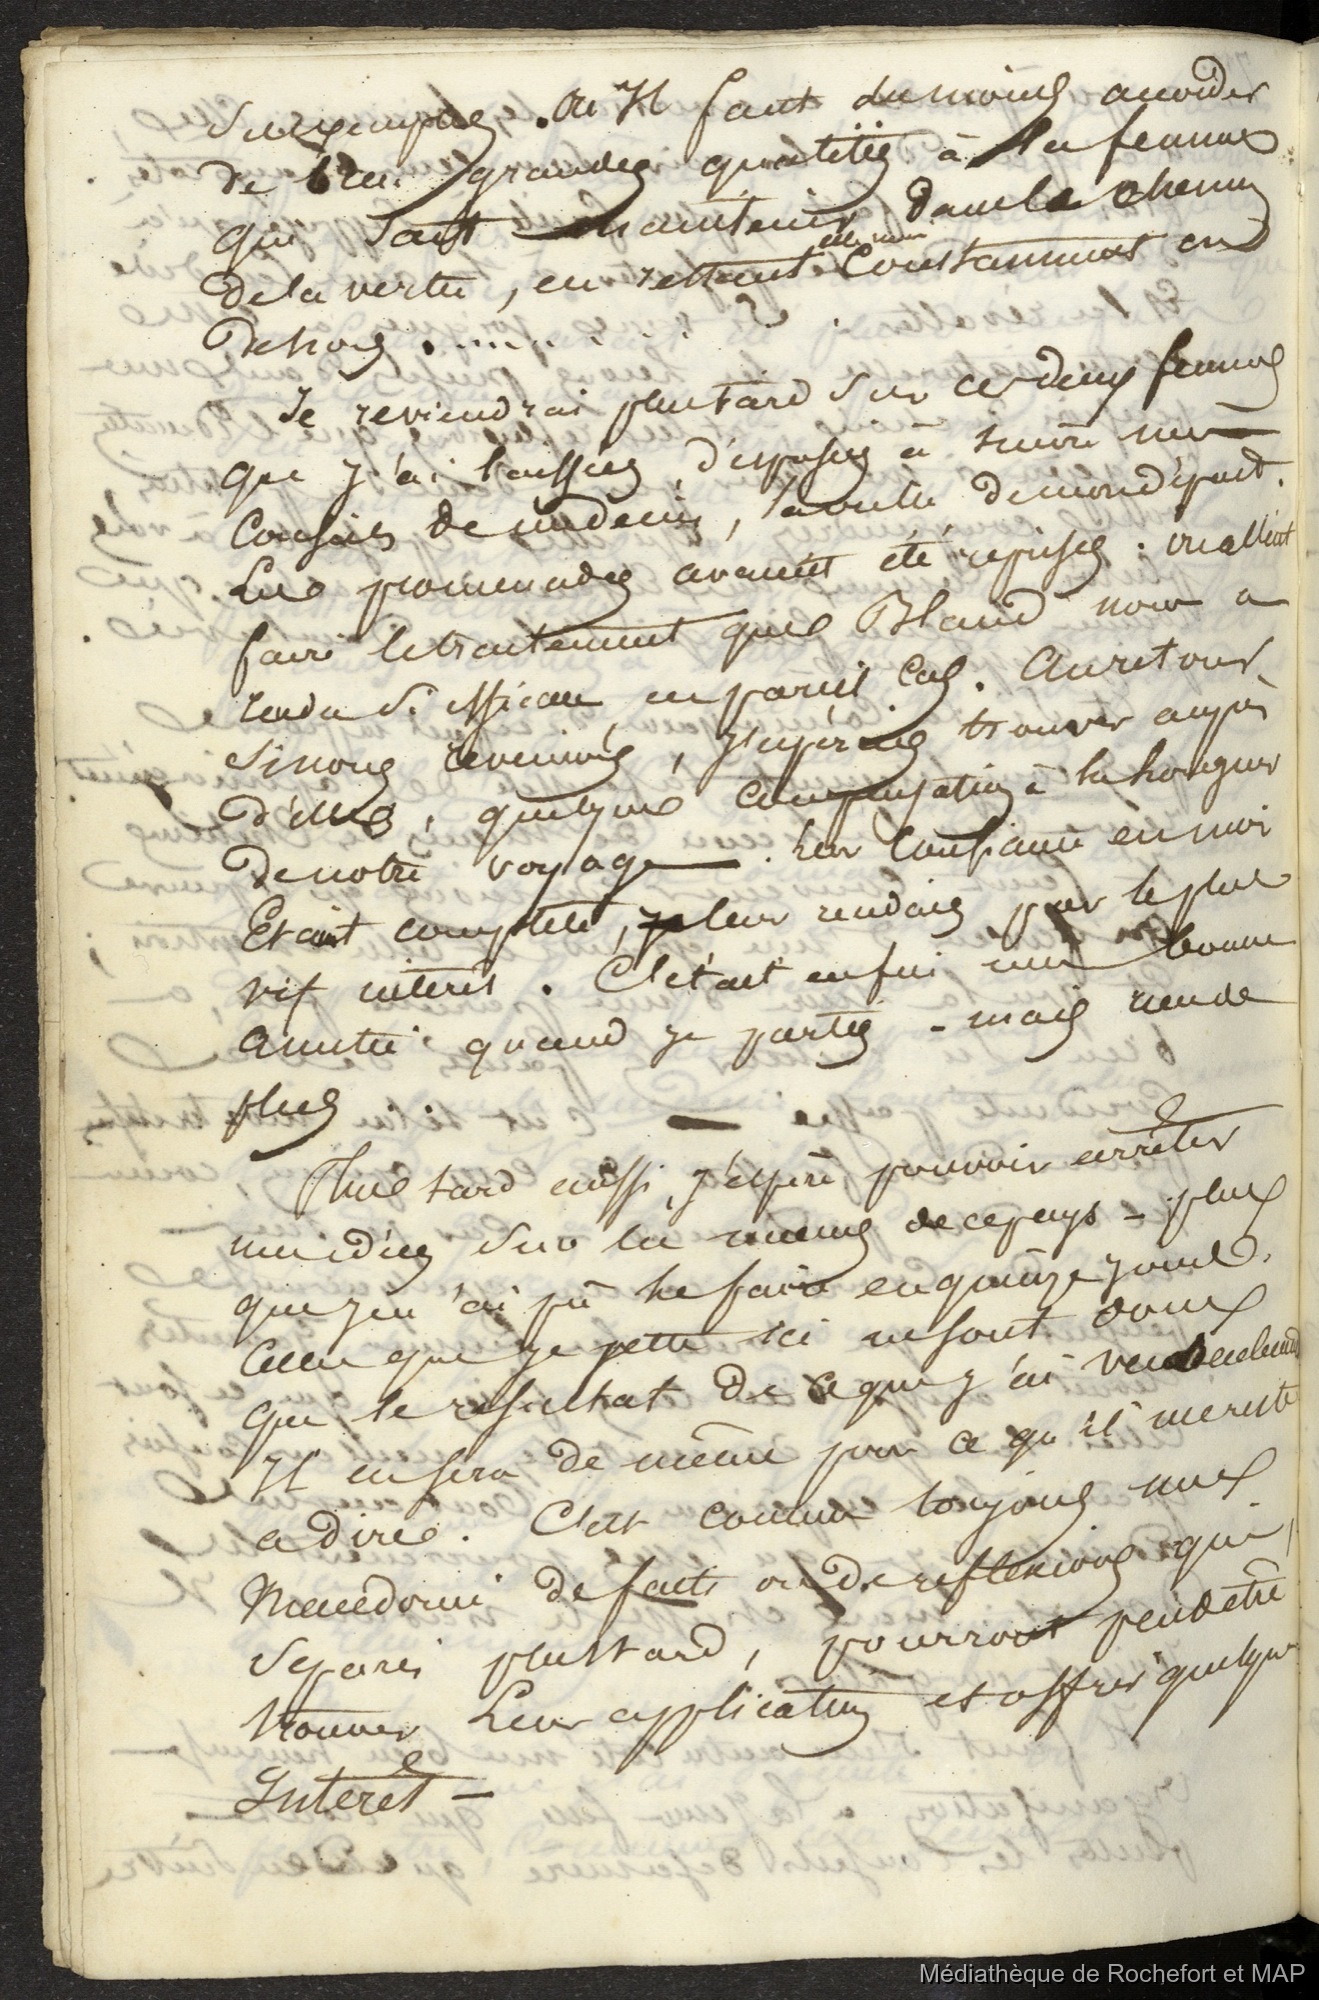 Ses exemples. Ou Il faut du moins accorder
de bien grandes qualités à la femme
qui sait maintenir dans le chemin
de la vertu, en restant elle même Constamment en
dehors . . . . . . . . . .
Je reviendrai plus tard sur ces deux femmes
que j'ai laissées disposées à suivre mes
Conseils de médecin, la veille de mon départ.
Les promenades avaient été reprises. on allait
faire le traitement que Blaud nous a
rendu si efficace en pareil Cas. Au retour
si nous revenions, j'espérais trouver auprès
d'elles, quelque compensation à la longueur
de notre voyage. Leur Confiance en moi
Etait complète, je leur rendais par le plus
vif intérêt. C'était enfin une bonne
amitié quand je partis - mais rien de
plus —
Plus tard aussi, j'espère pouvoir arrêter
mes idées sur les mœurs de ce pays - plus
que je n'ai pû le faire en quinze jours.
Celles que je jette ici ne sont donc
que le résultat de ce que j'ai vu
Il en sera de même pour ce qu'il me reste
a dire. C'est comme toujours une
Macédoine de faits ou de reflexions qui,
séparés plus tard, pourront peut être
trouver Leur application et offrir quelque
Intérêt —
Médiathèque de Rochefort et MAP